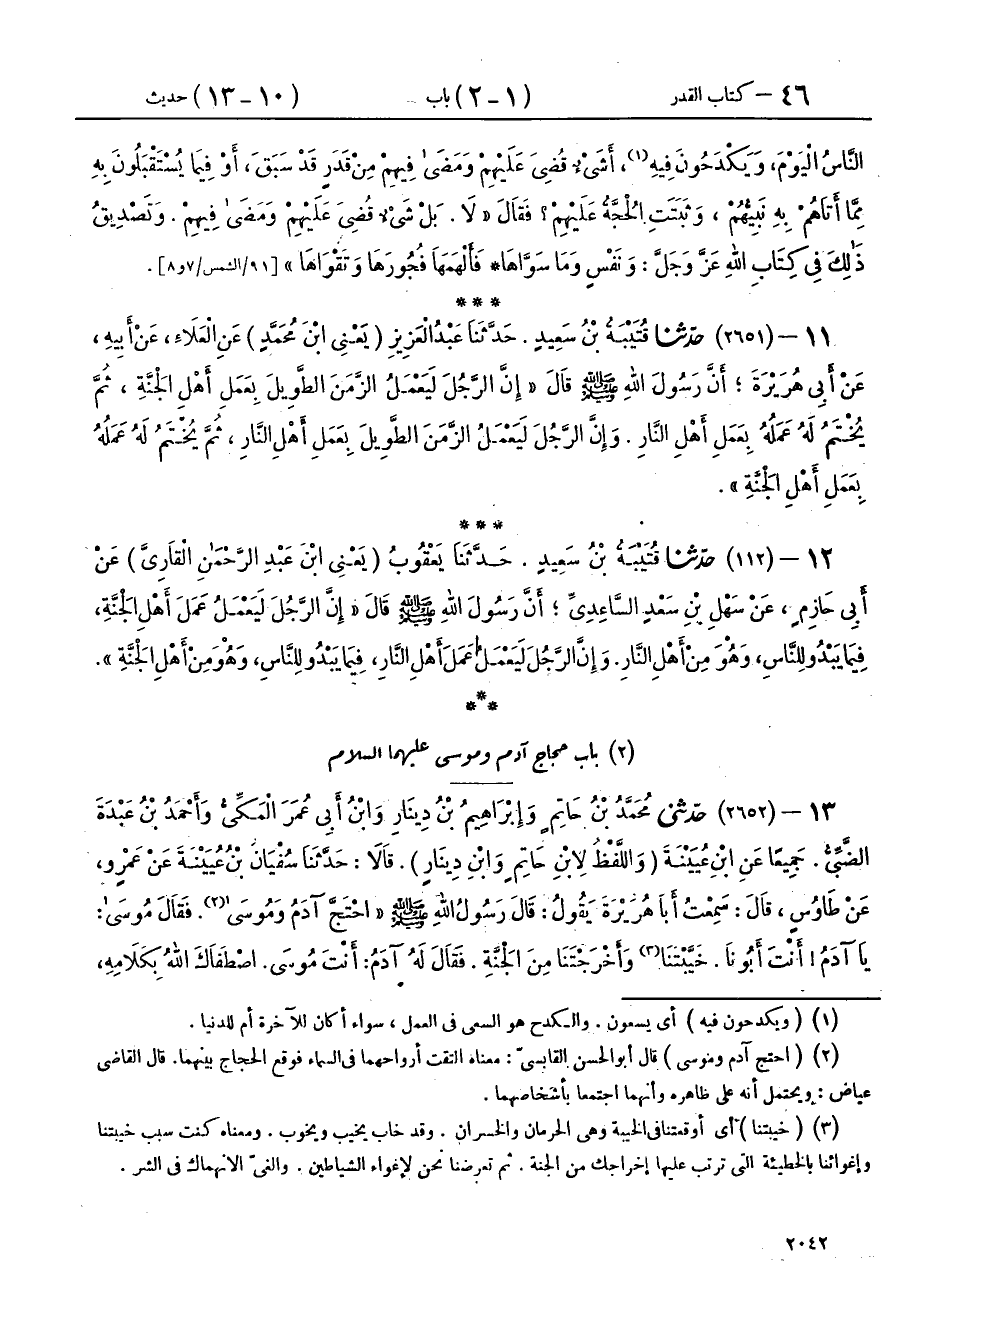 ٤٦ – كتاب القدر (١ – ٢) باب (١٠ – ١٣) حديث
النَّاسُ الْيَوْمَ، وَيَكْدَحُونَ فِيهِ(١)، أَشَىْءٌ قُضِىَ عَلَيْهِمْ وَمَضَىٰ فِيهِمْ مِنْ قَدَرٍ قَدْ سَبَقَ، أَوْ فِيمَا يُسْتَقْبَلُونَ بِهِ
مِمَّا أَتَاهُمْ بِهِ نَبِيُّهُمْ ، وَثَبَتَتِ الْحُجَّةُ عَلَيْهِمْ؟ فَقَالَ « لَا . بَلْ شَىْءٌ قُضِىَ عَلَيْهِمْ وَمَضَىٰ فِيهِمْ . وَتَصْدِيقُ
ذَٰلِكَ فِى كِتَابِ اللهِ عَزَّ وَجَلَّ : وَنَفْسٍ وَمَا سَوَّاهَا* فَأَلْهَمَهَا فُجُورَهَا وَتَقْوَاهَا » [٩١/الشمس/٧و٨] .
***
١١ – (٢٦٥١) حَدَّثَنَا قُتَيْبَةُ بْنُ سَعِيدٍ . حَدَّثَنَا عَبْدُ الْعَزِيزِ ( يَعْنِى ابْنَ مُحَمَّدٍ ) عَنِ الْعَلَاءِ ، عَنْ أَبِيهِ ،
عَنْ أَبِى هُرَيْرَةَ ؛ أَنَّ رَسُولَ اللهِ ﷺ قَالَ « إِنَّ الرَّجُلَ لَيَعْمَلُ الزَّمَنَ الطَّوِيلَ بِعَمَلِ أَهْلِ الْجَنَّةِ ، ثُمَّ
يُخْتَمُ لَهُ عَمَلُهُ بِعَمَلِ أَهْلِ النَّارِ . وَإِنَّ الرَّجُلَ لَيَعْمَلُ الزَّمَنَ الطَّوِيلَ بِعَمَلِ أَهْلِ النَّارِ ، ثُمَّ يُخْتَمُ لَهُ عَمَلُهُ
بِعَمَلِ أَهْلِ الْجَنَّةِ » .
***
١٢ – (١١٢) حَدَّثَنَا قُتَيْبَةُ بْنُ سَعِيدٍ . حَدَّثَنَا يَعْقُوبُ ( يَعْنِى ابْنَ عَبْدِ الرَّحْمَٰنِ الْقَارِىَّ ) عَنْ
أَبِى حَازِمٍ ، عَنْ سَهْلِ بْنِ سَعْدٍ السَّاعِدِىِّ ؛ أَنَّ رَسُولَ اللهِ ﷺ قَالَ « إِنَّ الرَّجُلَ لَيَعْمَلُ عَمَلَ أَهْلِ الْجَنَّةِ،
فِيمَا يَبْدُو لِلنَّاسِ، وَهُوَ مِنْ أَهْلِ النَّارِ. وَإِنَّ الرَّجُلَ لَيَعْمَلُ عَمَلَ أَهْلِ النَّارِ، فِيمَا يَبْدُو لِلنَّاسِ، وَهُوَ مِنْ أَهْلِ الْجَنَّةِ » .
***
(٢) باب حجاج آدم وموسى عليهما السلام
١٣ – (٢٦٥٢) حَدَّثَنِى مُحَمَّدُ بْنُ حَاتِمٍ وَإِبْرَاهِيمُ بْنُ دِينَارٍ وَابْنُ أَبِى عُمَرَ الْمَكِّىُّ وَأَحْمَدُ بْنُ عَبْدَةَ
الضَّبِّىُّ . جَمِيعًا عَنِ ابْنِ عُيَيْنَةَ ( وَاللَّفْظُ لِابْنِ حَاتِمٍ وَابْنِ دِينَارٍ ) . قَالَا : حَدَّثَنَا سُفْيَانُ بْنُ عُيَيْنَةَ عَنْ عَمْرٍو،
عَنْ طَاوُسٍ ، قَالَ : سَمِعْتُ أَبَا هُرَيْرَةَ يَقُولُ : قَالَ رَسُولُ اللهِ ﷺ « احْتَجَّ آدَمُ وَمُوسَىٰ(٢). فَقَالَ مُوسَىٰ:
يَا آدَمُ ! أَنْتَ أَبُونَا . خَيَّبْتَنَا(٣) وَأَخْرَجْتَنَا مِنَ الْجَنَّةِ . فَقَالَ لَهُ آدَمُ: أَنْتَ مُوسَى. اصْطَفَاكَ اللهُ بِكَلَامِهِ،
(١) ( ويكدحون فيه ) أى يسعون . والكدح هو السعى فى العمل ، سواء أكان للآخرة أم للدنيا .
(٢) ( احتج آدم وموسى ) قال أبو الحسن القابسىّ : معناه التقت أرواحهما فى السماء فوقع الحجاج بينهما. قال القاضى
عياض : ويحتمل أنه على ظاهره وأنهما اجتمعا بأشخاصهما .
(٣) ( خيبتنا ) أى أوقعتنا فى الخيبة وهى الحرمان والخسران . وقد خاب يخيب ويخوب . ومعناه كنت سبب خيبتنا
وإغوائنا بالخطيئة التى ترتب عليها إخراجك من الجنة . ثم تعرضنا نحن لإغواء الشياطين . والغىّ الانهماك فى الشر .
٢٠٤٢